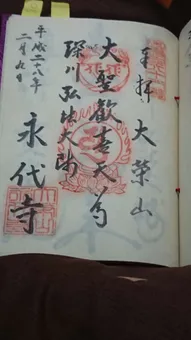 奉拝 大榮山
大聖歡喜天
深川弘法大師
永代寺
平成二十八年
二月九日